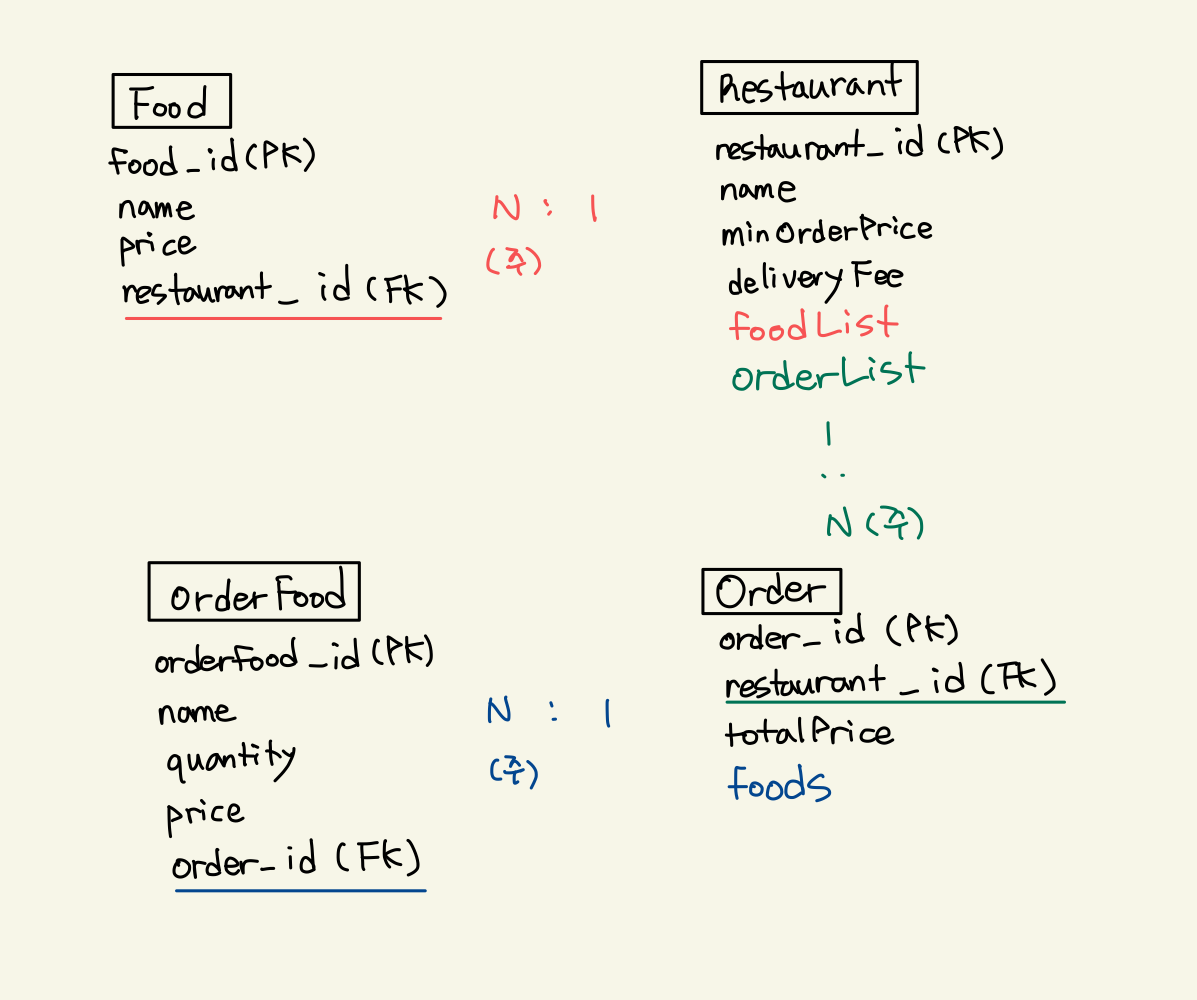 Food
food_id(PK)
name
price
restaurant_ id (FK)
N : 1
(주)
Restaurant
restaurant_ id (PK)
name
minOrderPrice
deliveryFee
foodList
orderList
1
··
N (주)
OrderFood
orderfood_id(PK)
name
quantity
price
order_id (FK)
N : 1
(주)
Order
order_id (PK)
restaurant_id (FK)
totalPrice
foods